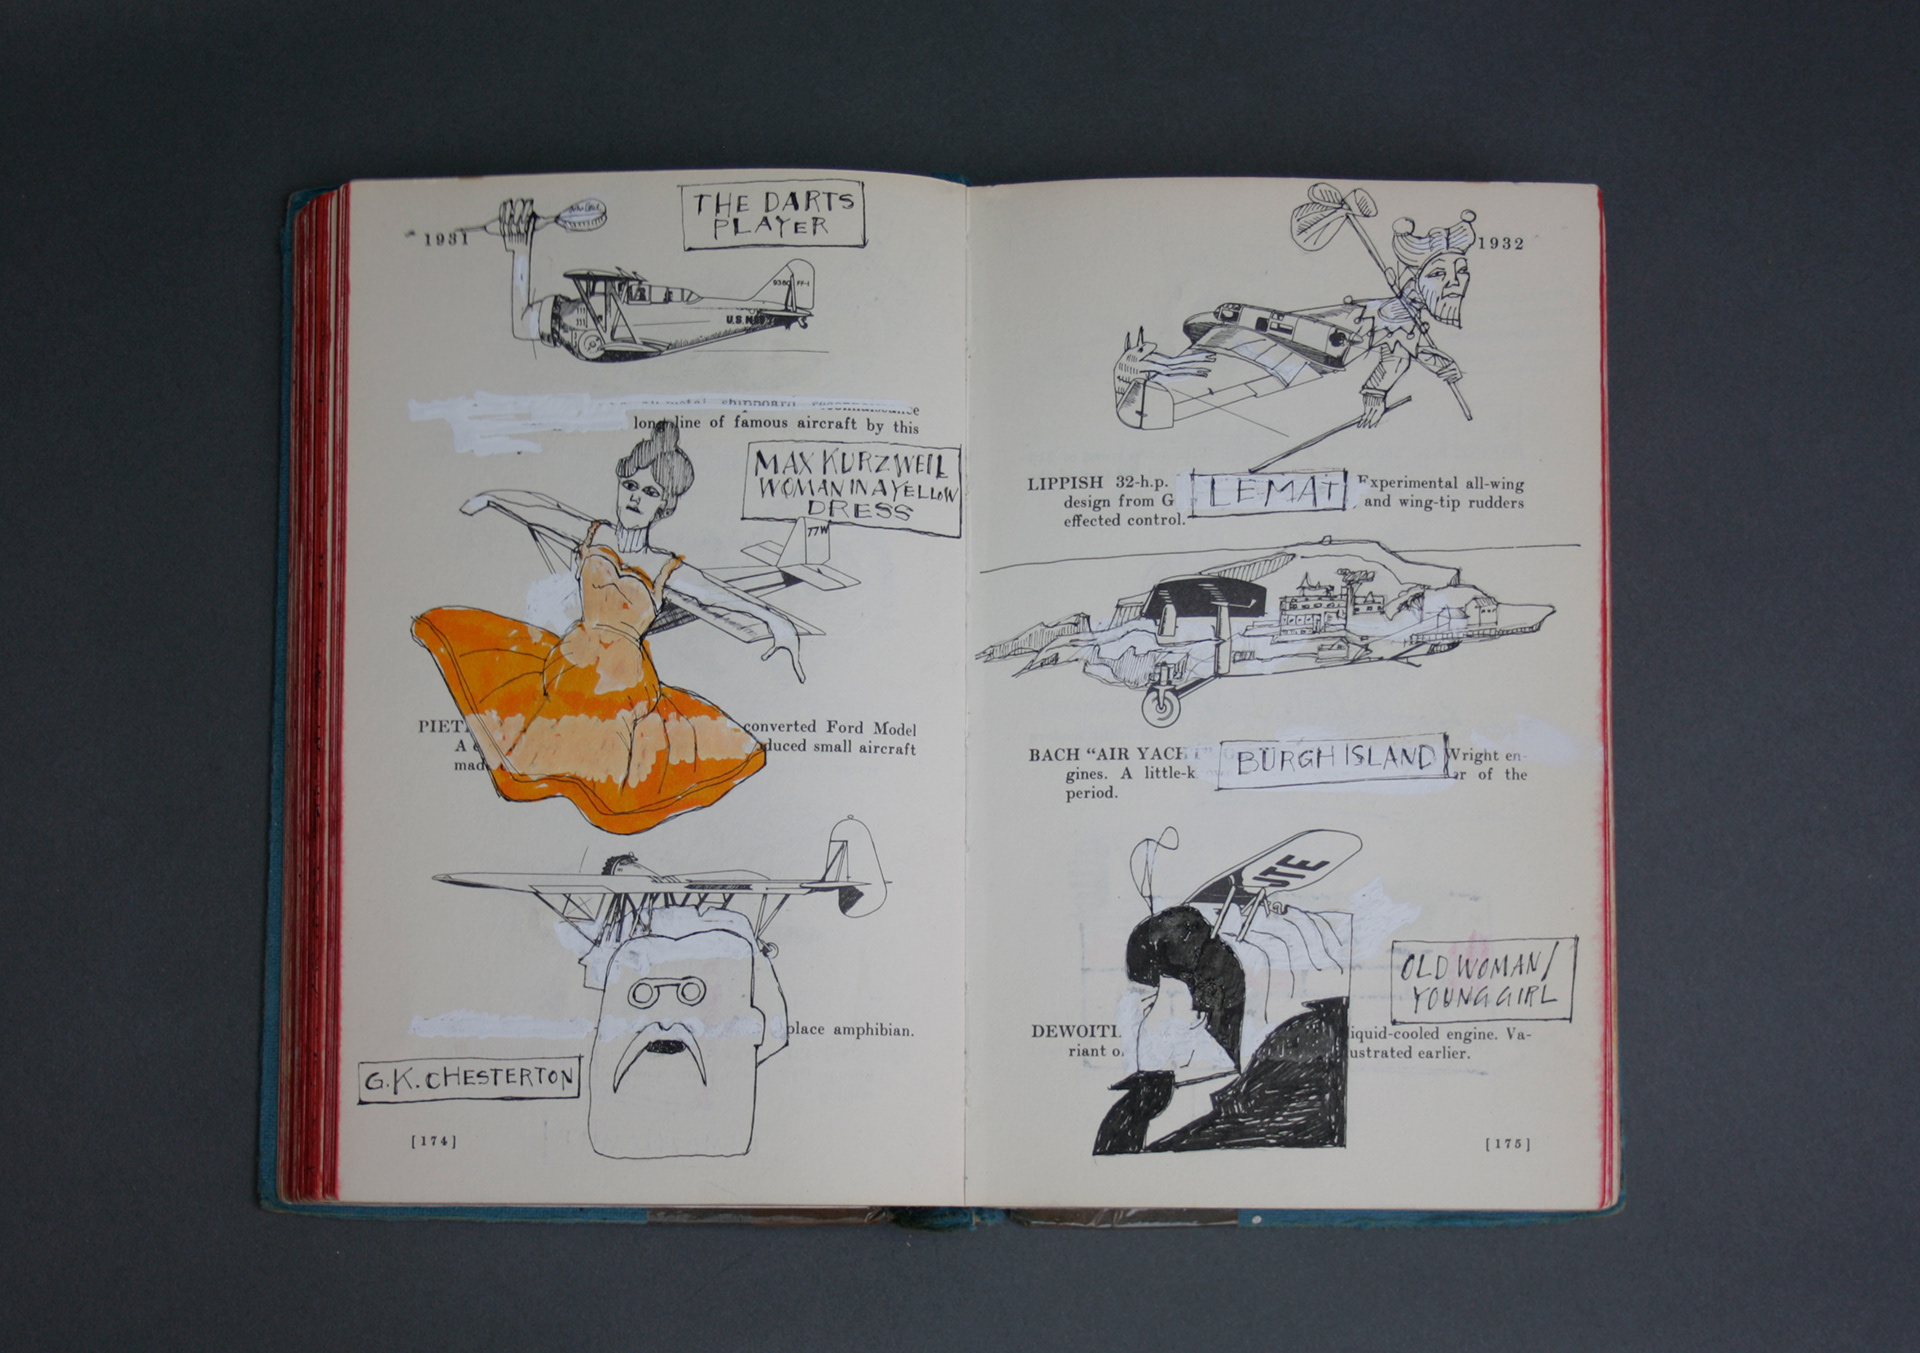 1931
THE DARTS
PLAYER
9380 FF-1
U.S. N
shipboard
long line of famous aircraft by this
MAX KURZWEIL
WOMAN IN A YELLOW
DRESS
77W
PIET converted Ford Model
A duced small aircraft
made
place amphibian.
G.K. CHESTERTON
[174]
1932
LIPPISH 32-h.p. LE MAT Experimental all-wing
design from G and wing-tip rudders
effected control.
BACH "AIR YACHT" BURGH ISLAND Wright en-
gines. A little-k r of the
period.
UTE
OLD WOMAN/
YOUNG GIRL
DEWOITI liquid-cooled engine. Va-
riant o ustrated earlier.
[175]